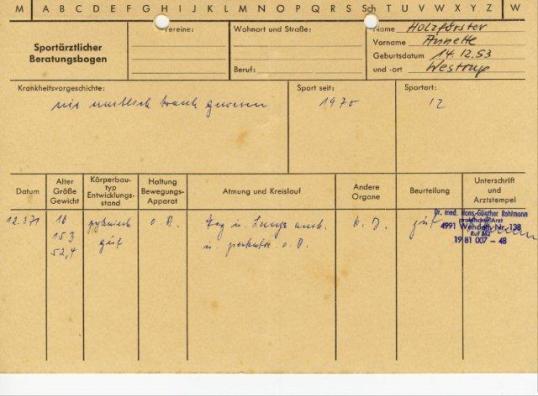 M A B C D E F G H I J K L M N O P Q R S Sch T U V W X Y Z W
Sportärztlicher
Beratungsbogen
Vereine:
Wohnort und Straße:
Beruf:
Name Holzförster
Vorname Annette
Geburtsdatum 14.12.53
und -ort Westrup
Krankheitsvorgeschichte:
nie ernstlich krank gewesen
Sport seit:
1970
Sportart:
Datum
Alter
Größe
Gewicht
Körperbau-
typ
Entwicklungs-
stand
Haltung
Bewegungs-
Apparat
Atmung und Kreislauf
Andere
Organe
Beurteilung
Unterschrift
und
Arztstempel
12.3.71
153
52,4
pyknisch
gut
o. B.
Herz u. Lunge ausk.
u. perkutor. o. B.
o. B.
gut
Dr. med. Hans-Günther Rohlmann
prakt. Arzt
4991 Wehdem Nr. 138
19 81 007 – 48